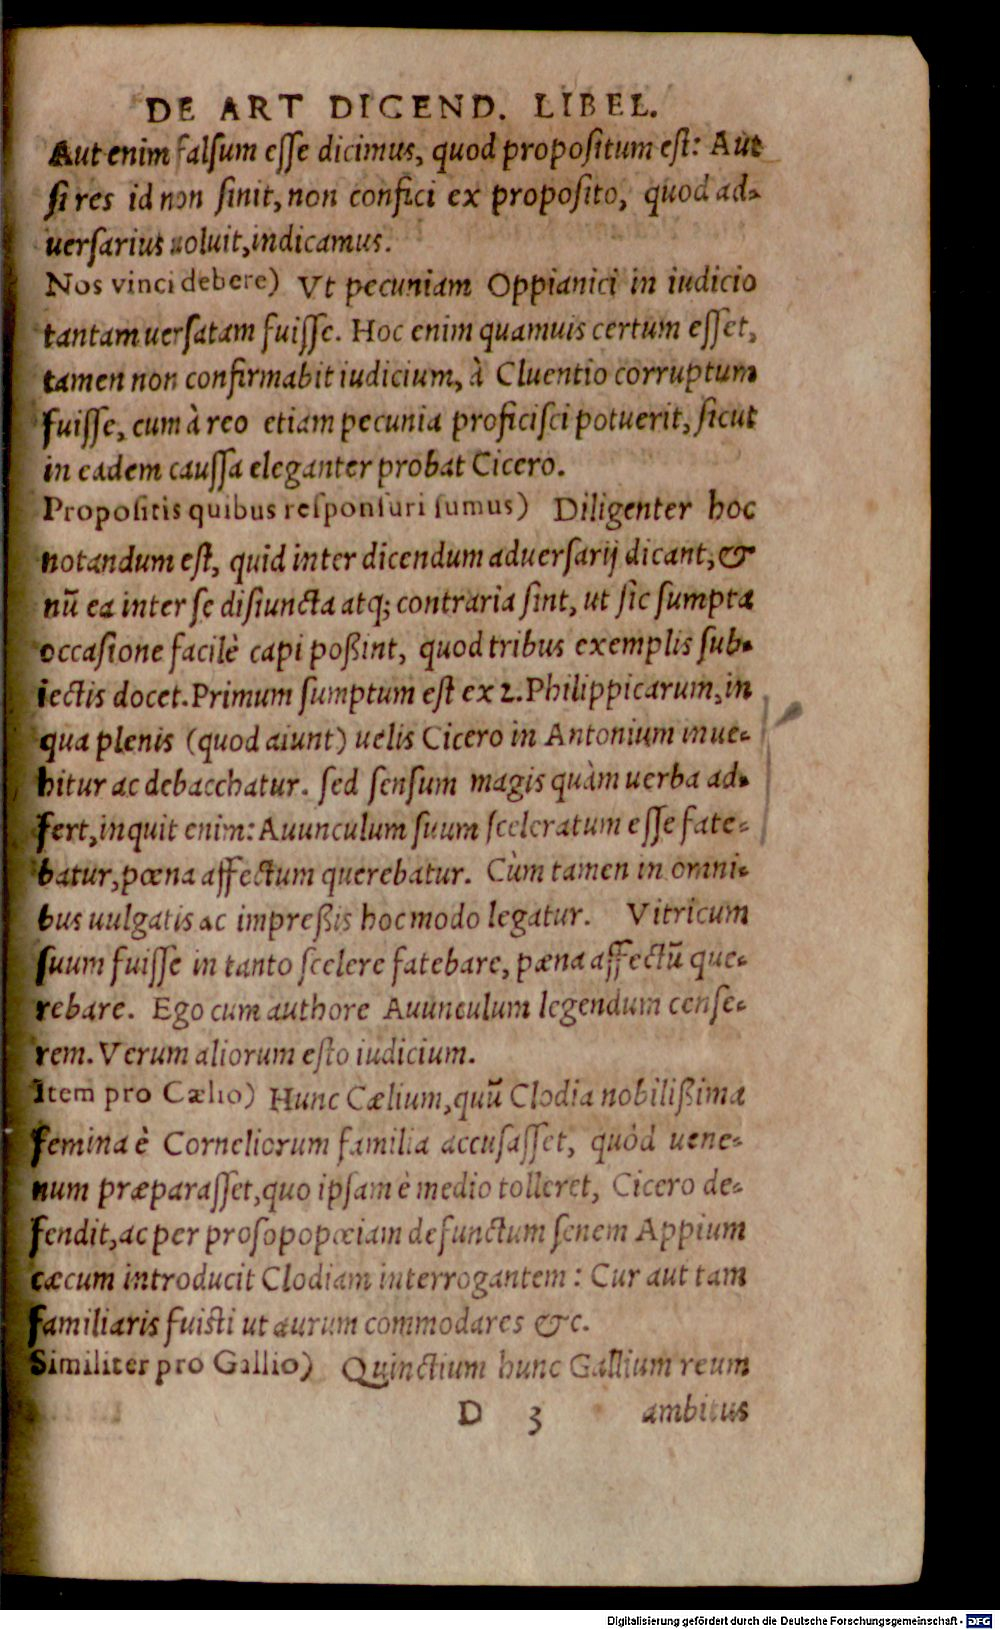 DE ART DICEND. LIBEL.
Aut enim falsum esse dicimus, quod propositum est: Aut
si res id non sinit, non confici ex proposito, quod ad-
uersarius uoluit, indicamus.
Nos vinci debere) Vt pecuniam Oppianici in iudicio
tantam uersatam fuisse. Hoc enim quamuis certum esset,
tamen non confirmabit iudicium, à Cluentio corruptum
fuisse, cum à reo etiam pecunia proficisci potuerit, sicut
in eadem caussa eleganter probat Cicero.
Propositis quibus responsuri sumus) Diligenter hoc
notandum est, quid inter dicendum aduersarij dicant, &
nū ea inter se disiuncta atq; contraria sint, ut sic sumpta
occasione facilè capi poßint, quod tribus exemplis sub-
iectis docet. Primum sumptum est ex 2. Philippicarum, in
qua plenis (quod aiunt) uelis Cicero in Antonium inue-
hitur ac debacchatur. sed sensum magis quàm uerba ad-
fert, inquit enim: Auunculum suum sceleratum esse fate-
batur, pœna affectum querebatur. Cùm tamen in omni-
bus uulgatis ac impreßis hoc modo legatur. Vitricum
suum fuisse in tanto scelere fatebare, pœna affectū que-
rebare. Ego cum authore Auunculum legendum cense-
rem. Verum aliorum esto iudicium.
Item pro Cælio) Hunc Cælium, quū Clodia nobilißima
femina è Corneliorum familia accusasset, quòd uene-
num præparasset, quo ipsam è medio tolleret, Cicero de-
fendit, ac per prosopopœiam defunctum senem Appium
cæcum introducit Clodiam interrogantem: Cur aut tam
familiaris fuisti ut aurum commodares &c.
Similiter pro Gallio) Quinctium hunc Gallium reum
D 3 ambitus
Digitalisierung gefördert durch die Deutsche Forschungsgemeinschaft - DFG